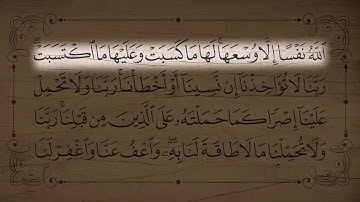 ٱللَّهُ نَفْسًا إِلَّا وُسْعَهَا ۚ لَهَا مَا كَسَبَتْ وَعَلَيْهَا مَا ٱكْتَسَبَتْ ۗ
رَبَّنَا لَا تُؤَاخِذْنَآ إِن نَّسِينَآ أَوْ أَخْطَأْنَا ۚ رَبَّنَا وَلَا تَحْمِلْ
عَلَيْنَآ إِصْرًا كَمَا حَمَلْتَهُۥ عَلَى ٱلَّذِينَ مِن قَبْلِنَا ۚ رَبَّنَا
وَلَا تُحَمِّلْنَا مَا لَا طَاقَةَ لَنَا بِهِۦ ۖ وَٱعْفُ عَنَّا وَٱغْفِرْ لَنَا